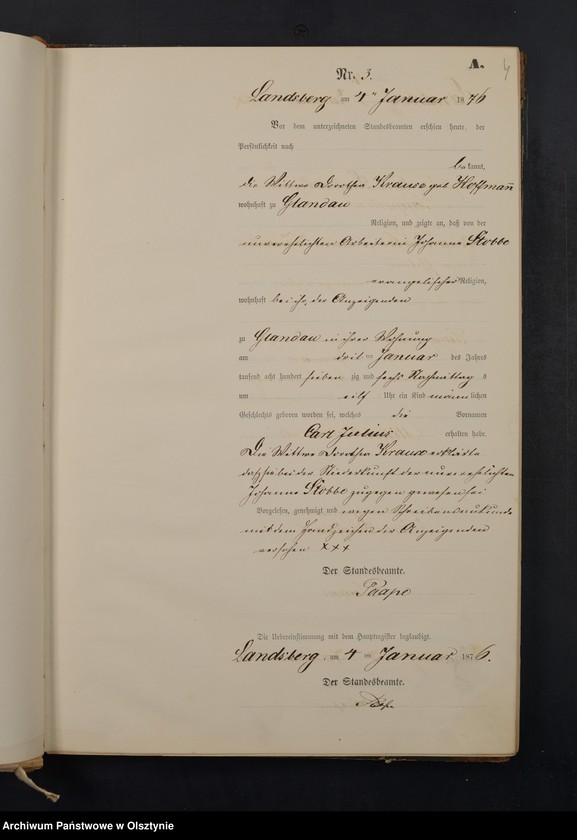 A.
4
Nr. 3.
Landsberg am 4ten Januar 1876
Vor dem unterzeichneten Standesbeamten erschien heute, der
Persönlichkeit nach
bekannt,
die Wittwe Dorothea Krause geb. Hoffmann
wohnhaft zu Glandau
Religion, und zeigte an, daß von der
unverehelichten Arbeiterin Johanne Stobbe
evangelischer Religion,
wohnhaft bei ihr, der Anzeigenden
zu Glandau in ihrer Wohnung
am dritten Januar des Jahres
tausend acht hundert siebenzig und sechs Nachmittags
um eilf Uhr ein Kind männlichen
Geschlechts geboren worden sei, welches die Vornamen
Carl Julius erhalten habe.
Die Wittwe Dorothea Krause erklärte
daß sie bei der Niederkunft der unverehelichten
Johanne Stobbe zugegen gewesen sei
Vorgelesen, genehmigt und wegen Schreibensunkunde
mit dem Handzeichen der Anzeigenden
versehen xxx
Der Standesbeamte.
Paape
Die Uebereinstimmung mit dem Hauptregister beglaubigt.
Landsberg, am 4ten Januar 1876.
Der Standesbeamte.
Archiwum Państwowe w Olsztynie